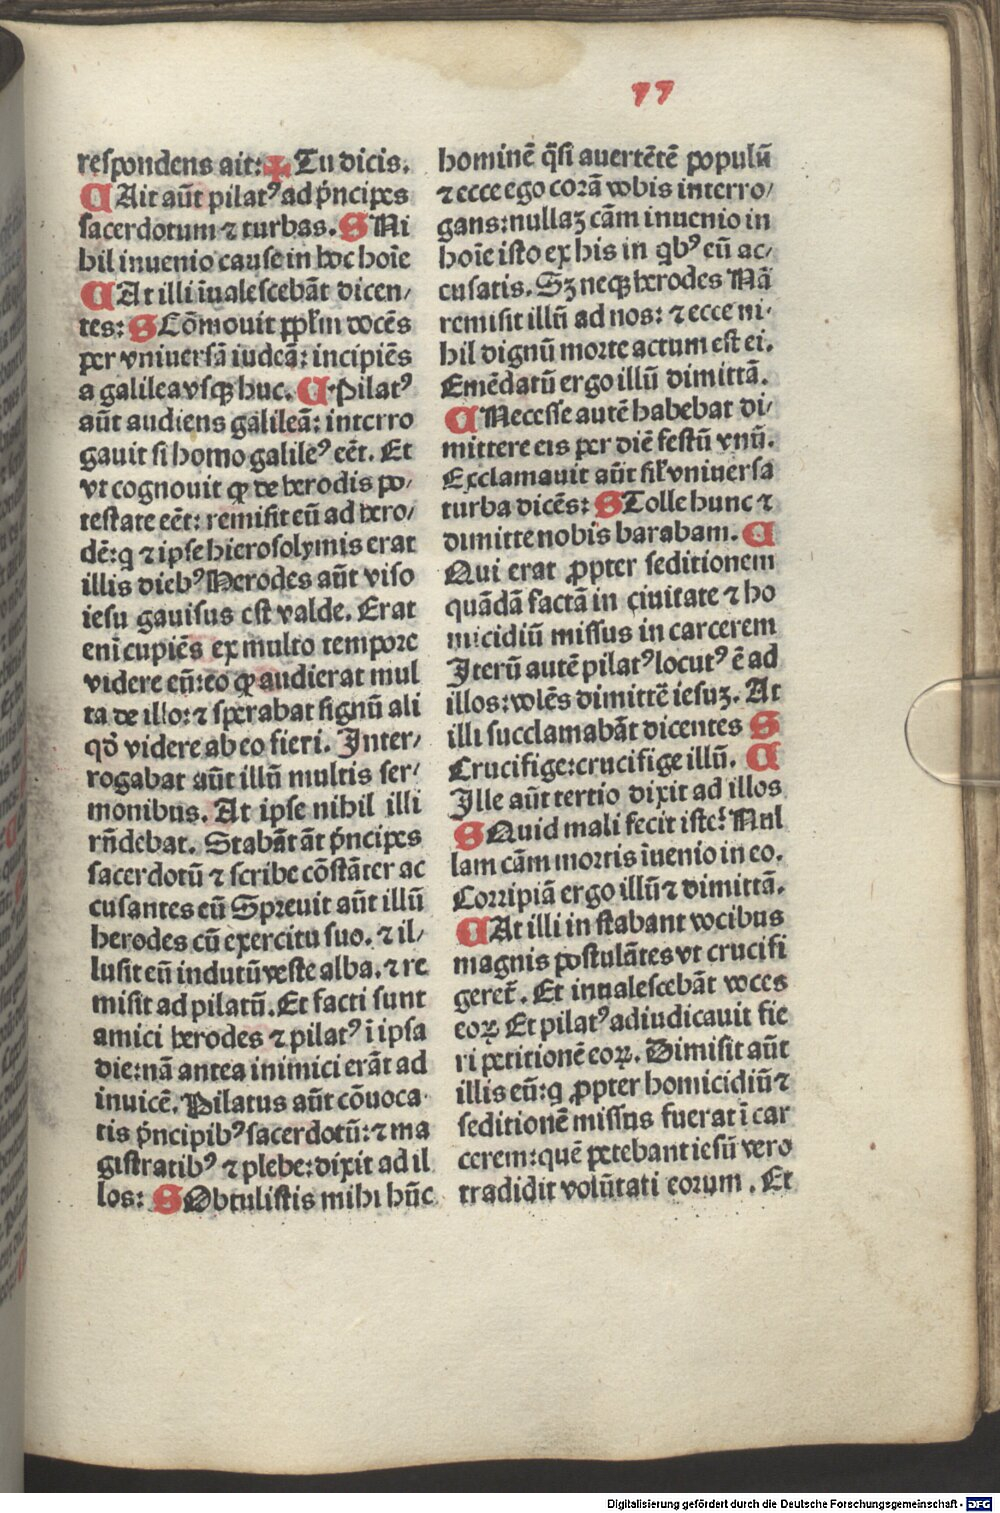 77
respondens ait: ✠ Tu dicis.
C Ait aūt pilatꝰ ad p̄ncipes
sacerdotum ⁊ turbas. S Ni
hil inuenio cause in hoc hoīe
C At illi īualescebāt dicen⸗
tes: S Cōmouit ppl̄m vocēs
per vniuersā iudeā: incipiēs
a galilea vsqꝫ huc. C Pilatꝰ
aūt audiens galileā: interro
gauit si homo galileꝰ eēt. Et
vt cognouit ꝙ de herodis po⸗
testate eēt: remisit eū ad hero⸗
dē: q̇ ⁊ ipse hierosolymis erat
illis diebꝰ Herodes aūt viso
iesu gauisus est valde. Erat
eni cupiēs ex multo tempore
videre eū: eo ꝙ audierat mul
ta de illo: ⁊ sperabat signū ali
qd̄ videre ab eo fieri. Inter⸗
rogabat aūt illū multis ser⸗
monibus. At ipse nihil illi
rn̄debat. Stabāt āt p̄ncipes
sacerdotū ⁊ scribe cōstāter ac
cusantes eū Spreuit aūt illū
herodes cū exercitu suo. ⁊ il⸗
lusit eū indutū veste alba. ⁊ re
misit ad pilatū. Et facti sunt
amici herodes ⁊ pilatꝰ ī ipsa
die: nā antea inimici erāt ad
inuicē. Pilatus aūt cōuoca
tis p̄ncipibꝰ sacerdotū: ⁊ ma
gistratibꝰ ⁊ plebe: dixit ad il
los: S Obtulistis mihi hūc
hominē q̄si auertētē populū
⁊ ecce ego corā vobis interro⸗
gans: nullaꝫ cām inuenio in
hoīe isto ex his in qbꝰ eū ac⸗
cusatis. Sꝫ neqꝫ herodes Nā
remisit illū ad nos: ⁊ ecce ni⸗
hil dignū morte actum est ei.
Emēdatū ergo illū dimittā.
C Necesse autē habebat di⸗
mittere eis per diē festū vnū.
Exclamauit aūt sil̄ vniuersa
turba dicēs: S Tolle hunc ⁊
dimitte nobis barabam. C
Qui erat ꝓpter seditionem
quādā factā in ciuitate ⁊ ho
micidiū missus in carcerem
Iterū autē pilatꝰ locutꝰ ē ad
illos: volēs dimittē iesuꝫ. At
illi succlamabāt dicentes S
Crucifige: crucifige illū. C
Ille aūt tertio dixit ad illos
S Quid mali fecit iste? Nul
lam cām mortis īuenio in eo.
Corripiā ergo illū ⁊ dimittā.
C At illi in stabant vocibus
magnis postulātes vt crucifi
geret̄. Et inualescebāt voces
eoꝝ Et pilatꝰ adiudicauit fie
ri petitionē eoꝝ. Dimisit aūt
illis eū: q̇ ꝓpter homicidiū ⁊
seditionē missus fuerat ī car
cerem: quē petebant iesū vero
tradidit volūtati eorum. Et
Digitalisierung gefördert durch die Deutsche Forschungsgemeinschaft - DFG